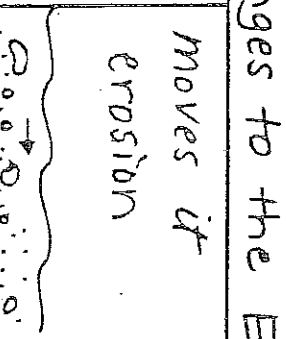 nges to the E
moves it
erosion